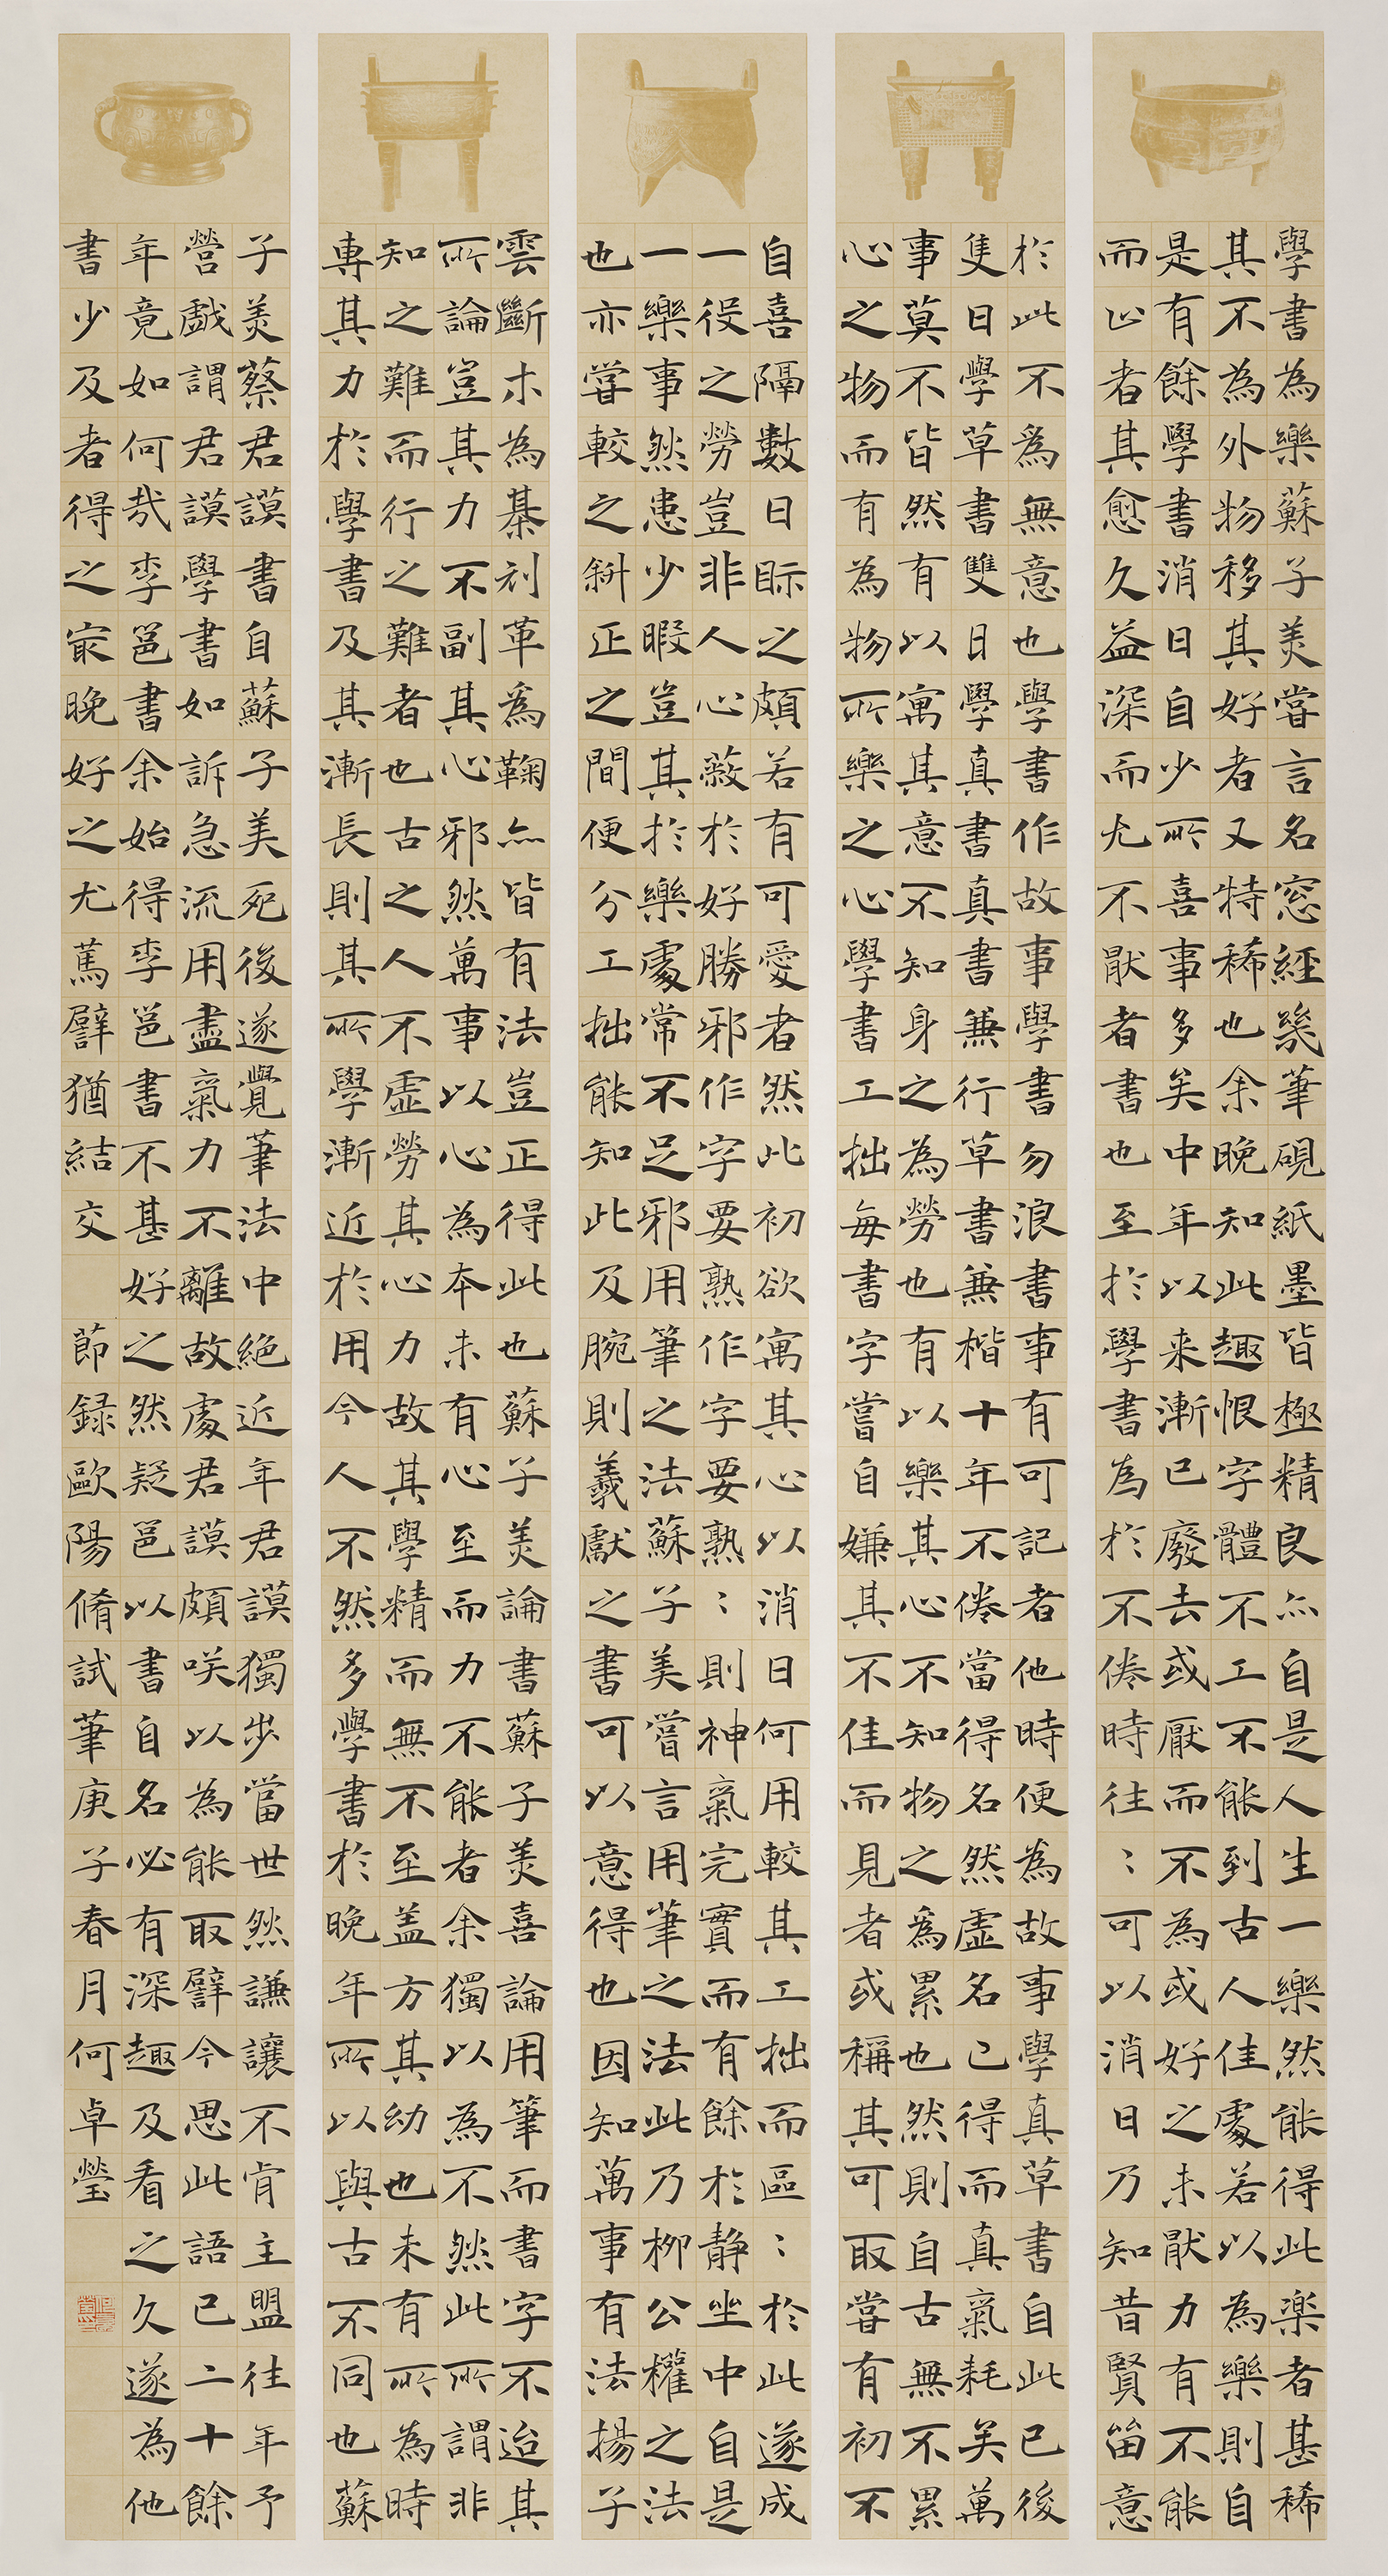 學書為樂蘇子美嘗言名窓經幾筆硯紙墨皆極精良亦自是人生一樂然能得此樂者甚稀
其不為外物移其好者又特稀也余晚知此趣恨字體不工不能到古人佳處若以為樂則自
是有餘學書消日自少所喜事多矣中年以来漸已廢去或厭而不為或好之未猒力有不能
而止者其愈久益深而尤不猒者書也至於學書為於不倦時往:可以消日乃知昔賢留意
於此不為無意也學書作故事學書勿浪書事有可記者他時便為故事學真草書自此已後
隻日學草書雙日學真書真書兼行草書兼楷十年不倦當得名然虛名已得而真氣耗矣萬
事莫不皆然有以寓其意不知身之為勞也有以樂其心不知物之為累也然則自古無不累
心之物而有為物所樂之心學書工拙每書字嘗自嫌其不佳而見者或稱其可取嘗有初不
自喜隔數日眎之頗若有可愛者然此初欲寓其心以消日何用較其工拙而區:於此遂成
一役之勞豈非人心蔽於好勝邪作字要熟作字要熟:則神氣完實而有餘於静坐中自是
一樂事然患少暇豈其於樂處常不足邪用筆之法蘇子美嘗言用筆之法此乃柳公權之法
也亦嘗較之斜正之間便分工拙能知此及腕則羲獻之書可以意得也因知萬事有法揚子
雲斷木為棊刓革為鞠亦皆有法豈正得此也蘇子美論書蘇子美喜論用筆而書字不迨其
所論豈其力不副其心邪然萬事以心為本未有心至而力不能者余獨以為不然此所謂非
知之難而行之難者也古之人不虛勞其心力故其學精而無不至盖方其幼也未有所為時
專其力於學書及其漸長則其所學漸近於用今人不然多學書於晚年所以與古不同也蘇
子美蔡君謨書自蘇子美死後遂覺筆法中絕近年君謨獨步當世然謙讓不肯主盟往年予
營戲謂君謨學書如訴急流用盡氣力不離故處君謨頗咲以為能取譬今思此語已二十餘
年竟如何哉李邕書余始得李邕書不甚好之然疑邕以書自名必有深趣及看之久遂為他
書少及者得之㝡晚好之尤篤譬猶結交 節録歐陽脩試筆庚子春月何卓瑩